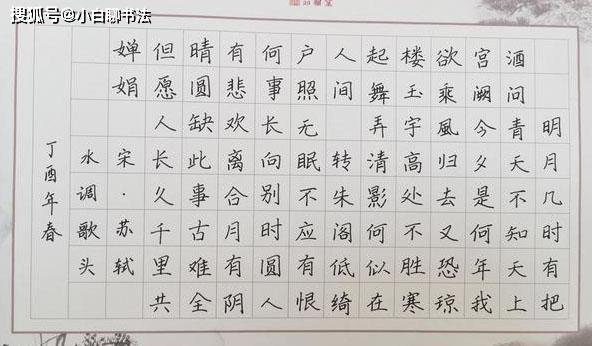 搜狐号@小白聊书法
明月几时有把
酒问青天不知天上
宫阙今夕是何年我
欲乘風归去又恐琼
楼玉宇高处不胜寒
起舞弄清影何似在
人间 转朱阁低绮
户照无眠不应有恨
何事长向别时圆人
有悲欢离合月有阴
晴圆缺此事古难全
但愿人长久千里共
婵娟 宋·苏轼
水调歌头
丁酉年春